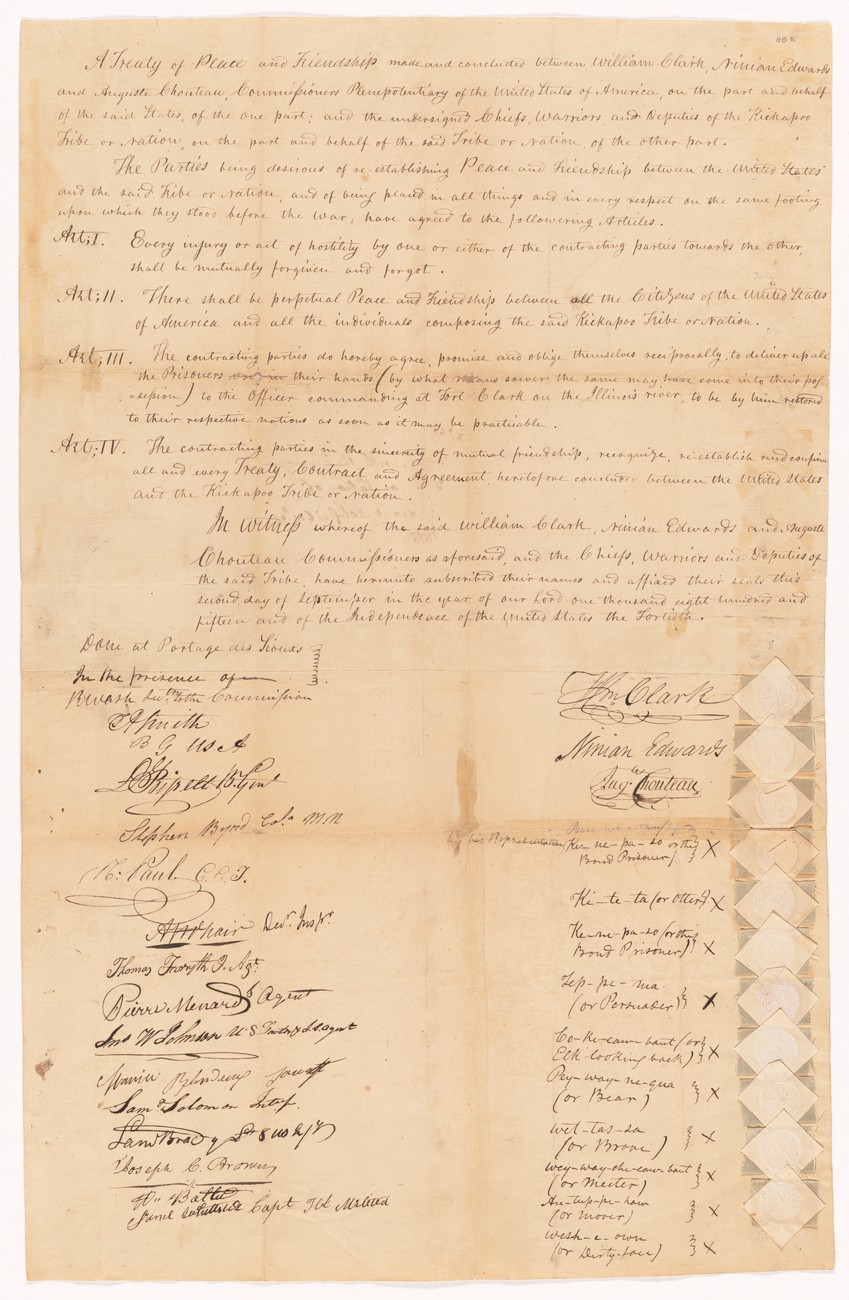 A Treaty of Peace and Friendship made and concluded between William Clark, Ninian Edwards
and Auguste Chouteau, Commissioners Plenepotentiary of the United States of America, on the part and behalf
of the said States, of the one part; and the undersigned Chiefs, Warriors, and Deputies of the Kickapoo
Tribe or Nation, on the part and behalf of the said Tribe or Nation, of the other part.
The Parties being desirous of re-establishing Peace and Friendship between the United States
and the said Tribe or Nation, and of being placed in all things and in every respect on the same footing
upon which they stood before the War, have agreed to the followering Articles.
Art; I. Every injury or act of hostility by one or either of the contracting parties towards the other,
shall be mutually forgiven and forgot.
Art; II. There shall be perpetual Peace and Friendship between all the Citizens of the United States
of America and all the individuals composing the said Kickapoo Tribe or Nation.
Art; III. The contracting parties do hereby agree, promise and oblige themselves reciprocally, to deliver up all
the Prisoners now in their hands (by what means soever the same may have come into their pos
-session) to the Officer commanding at Fort Clark on the Illinois river, to be by him restored
to their respective nations as soon as it may be practicable.
Art; IV. The contracting parties in the sincerity of mutual friendship, recognize, re-establish and confirm
all and every Treaty, Contract and Agreement, heretofore concluded between the United States
and the Kickapoo Tribe or Nation.
In witness whereof the said William Clark, Ninian Edwards and Auguste
Chouteau Commissioners as aforesaid, and the Chiefs, Warriors and Deputies of
the said Tribe, have hereunto subscribed their names and affixed their seals this
second day of September in the year of our Lord one thousand eight hundred and
fifteen and of the Independence of the United States the Fortieth.
Done at Portage des Sioux
In the presence of
R Wash Sec'ty to the Commission
T A Smith
B G US A
Stephen Byrd Col. M.M
N: Paul C. C. T.
Thomas Forsyth I. Agt.
Pierre Menard Agent
Jno W Johnson US Factor & I agent
Saml Solomon Intp.
Joseph C. Brown
Capt Ill Militia
Wm Clark
Ninian Edwards
Aug:te Chouteau
by his Representative Ke-ne-pa-so or the
Bond Prisoner) X
Ki-te-ta (or Otter) X
Ke-ne-pa-so (or the
Bond Prisoner) X
Tep-pe-ma
(or Persuader) X
Co-ke-caw-baut (or
Elk looking back) X
Pey-way-ne-qua
(or Bear) X
Wet-tas-sa
(or Brave) X
Wey-way-che-caw-baut
(or Meeter) X
Au-tup-pe-haw
(or mover) X
Wesh-e-own
(or Dirty face) X